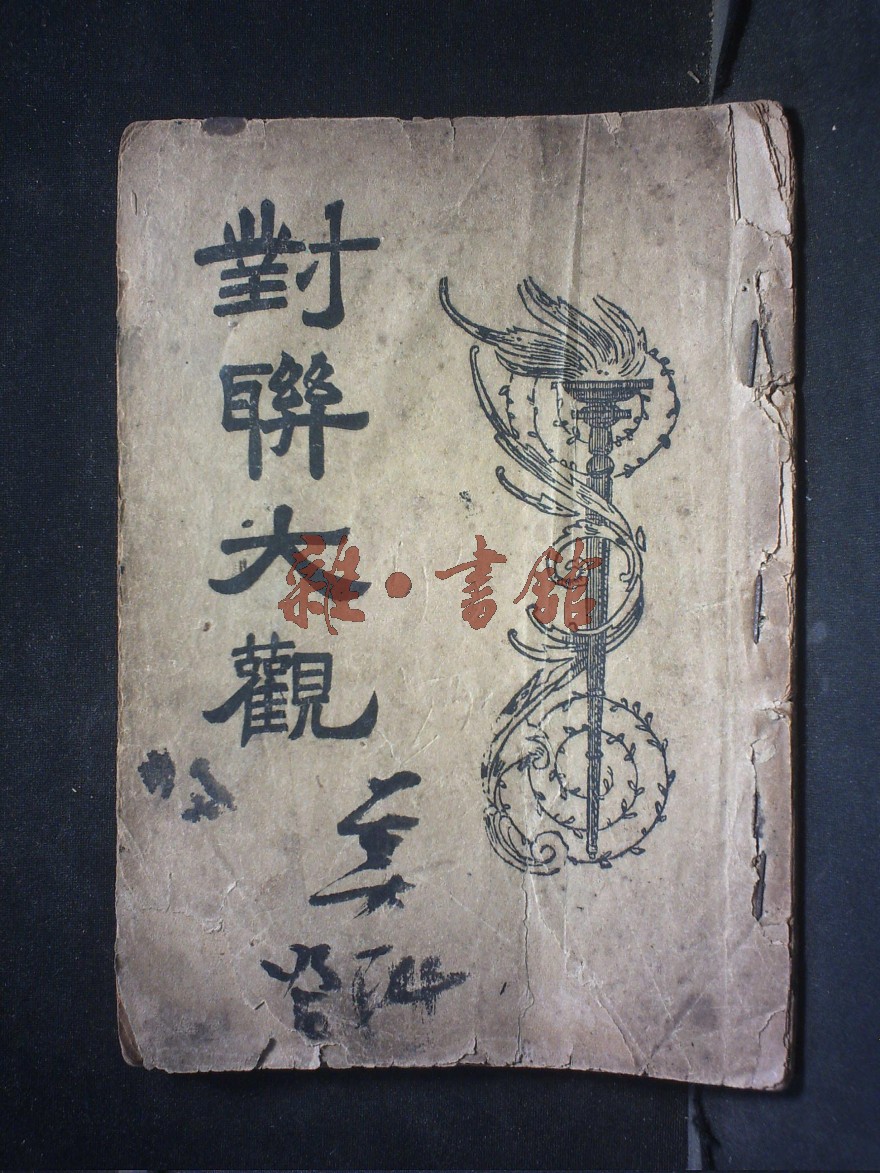 對聯大觀
雜·書館